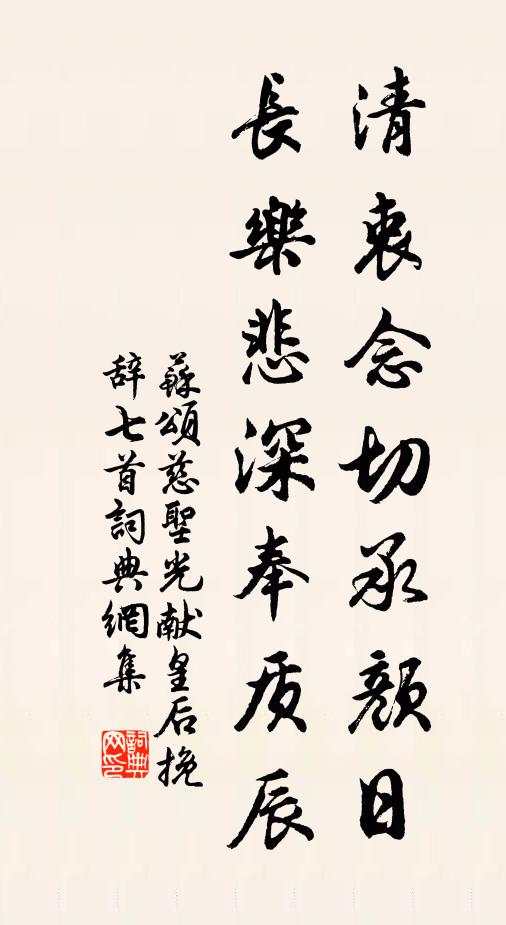 清衷念切承颜日
長樂悲深奉质辰
蘇頌慈聖光献皇后挽
辞七首詞典網集
詞典网印